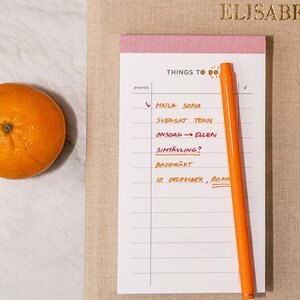 ELISABE
THINGS TO DO
priority ✓
MAILA SOPIA
SVENSKT TENN
ONSDAG → ELLEN
SIMTÄVLING?
BADDRÄKT
10 DECEMBER, BOKA